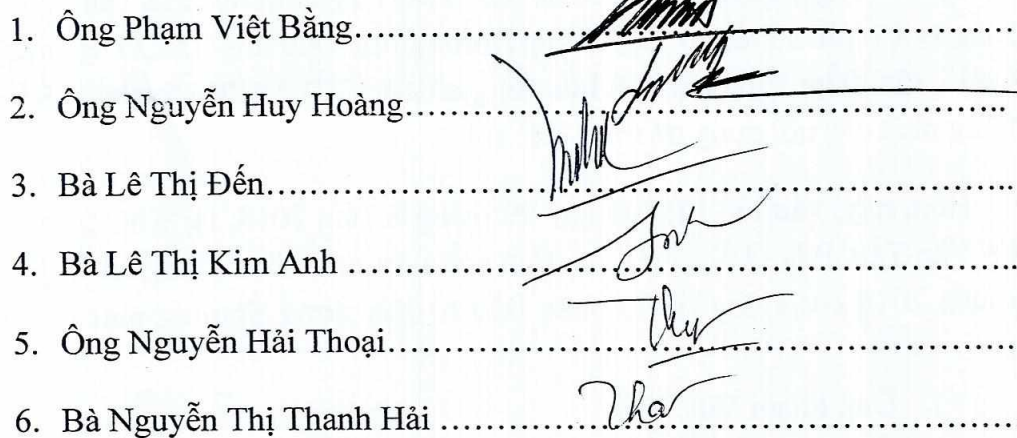 1. Ông Phạm Việt Bằng...........................................................
2. Ông Nguyễn Huy Hoàng...........................................................
3. Bà Lê Thị Đến...........................................................
4. Bà Lê Thị Kim Anh ...........................................................
5. Ông Nguyễn Hải Thoại...........................................................
6. Bà Nguyễn Thị Thanh Hải ...........................................................